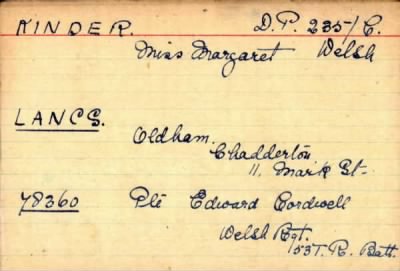 KINDER. D.P. 235/C.
Miss Margaret Welsh
LANCS.
Oldham.
Chadderton
11, Mark St.
78360 Pte Edward Cordwell
Welsh Rgt.
53 T. R. Batt.